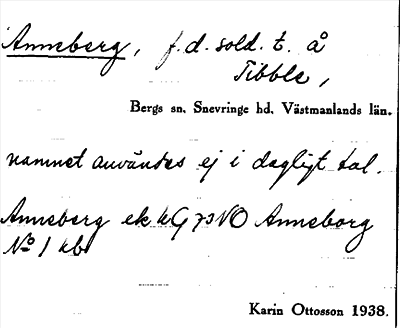 Anneberg, f. d. sold. t. å
Tibble,
Bergs sn, Snevringe hd, Västmanlands län.
namnet användes ej i dagligt tal.
Anneberg ek kG 73 NO Anneborg
No 1 kb
Karin Ottosson 1938.